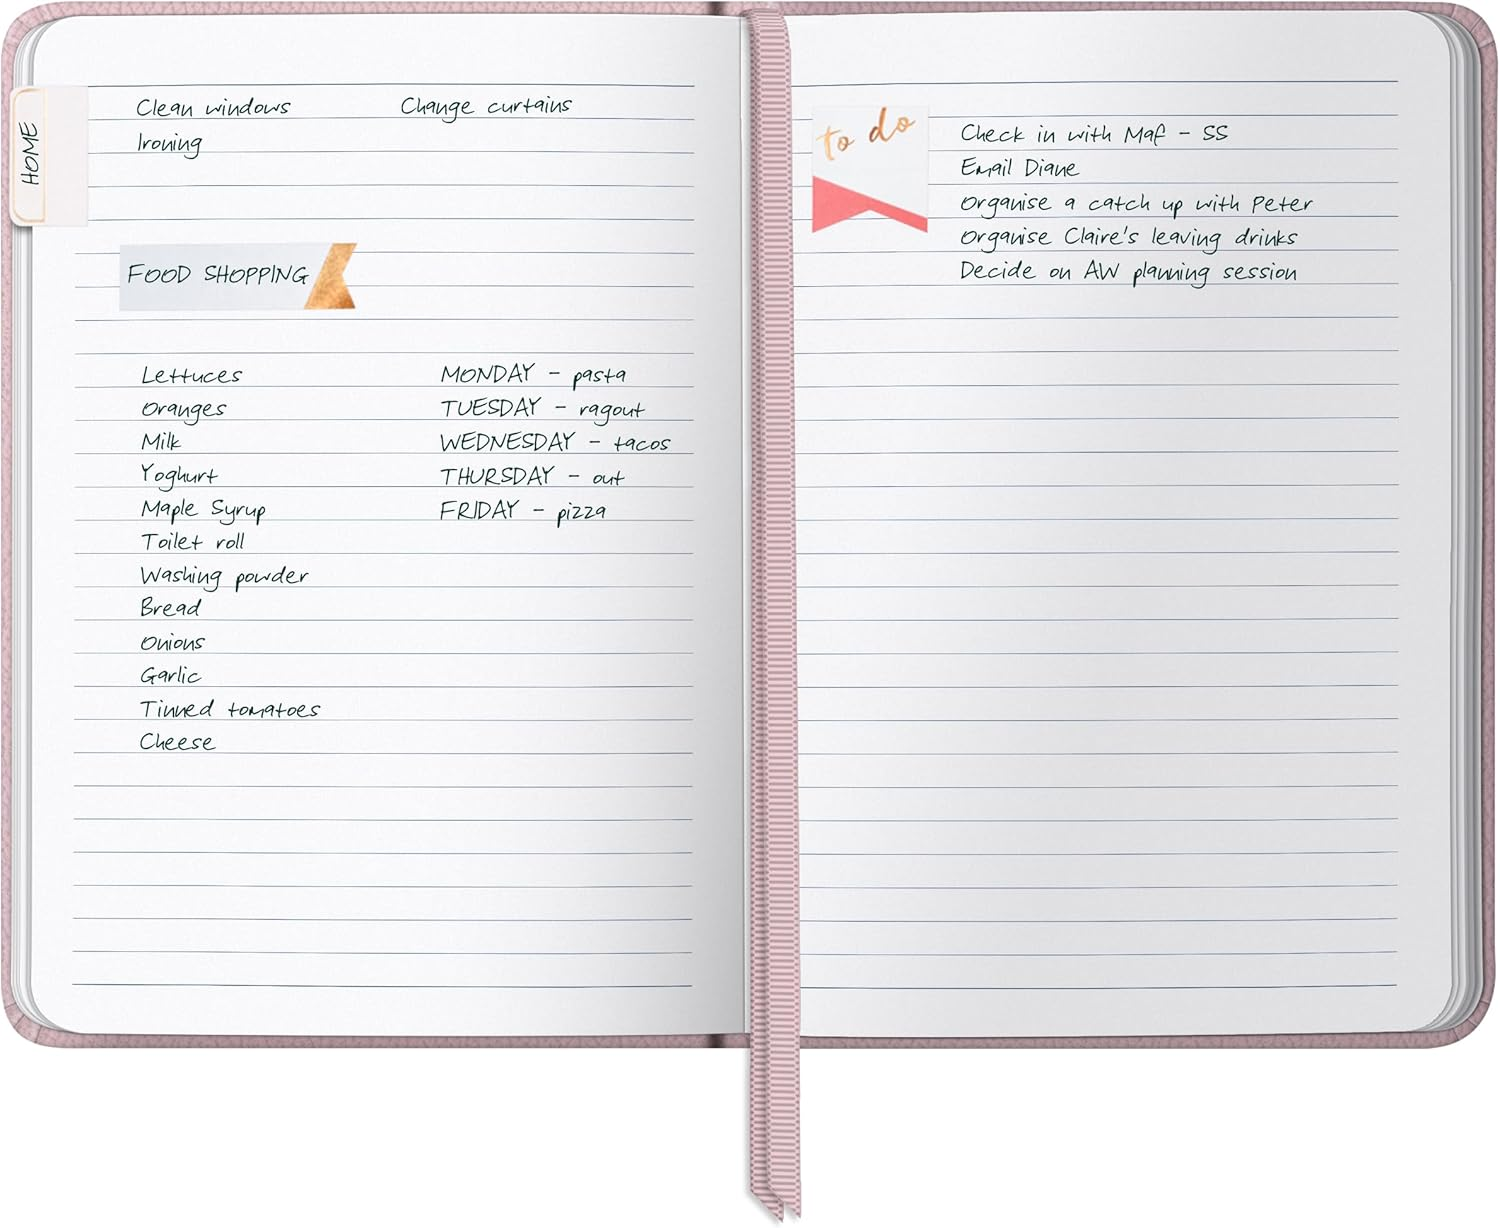 HOME
Clean windows Change curtains
Ironing
FOOD SHOPPING
Lettuces MONDAY - pasta
Oranges TUESDAY - ragout
Milk WEDNESDAY - tacos
Yoghurt THURSDAY - out
Maple Syrup FRIDAY - pizza
Toilet roll
Washing powder
Bread
Onions
Garlic
Tinned tomatoes
Cheese
to do
Check in with Maf - SS
Email Diane
Organise a catch up with Peter
Organise Claire's leaving drinks
Decide on AW planning session